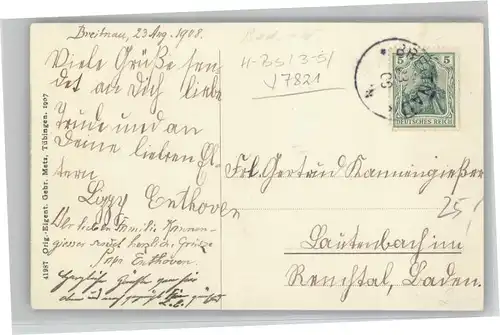 Breitnau, 23 Aug. 1908.
Viele Grüße sen-
det an dich liebe
Trude und an
Deine lieben El-
tern
Lizzy Enthoven
Der lieben Familie Kannen-
giesser sagt herzlich. Grüße
Enthoven.
Herzliche Grüße
41987 Orig.-Eigent. Gebr. Metz, Tübingen. 1907
H-Bs/3-5/
V7821
5 5
DEUTSCHES REICH
Frl. Gertrud Kanningießer
25
Lautenbach im
Renchtal, Baden.